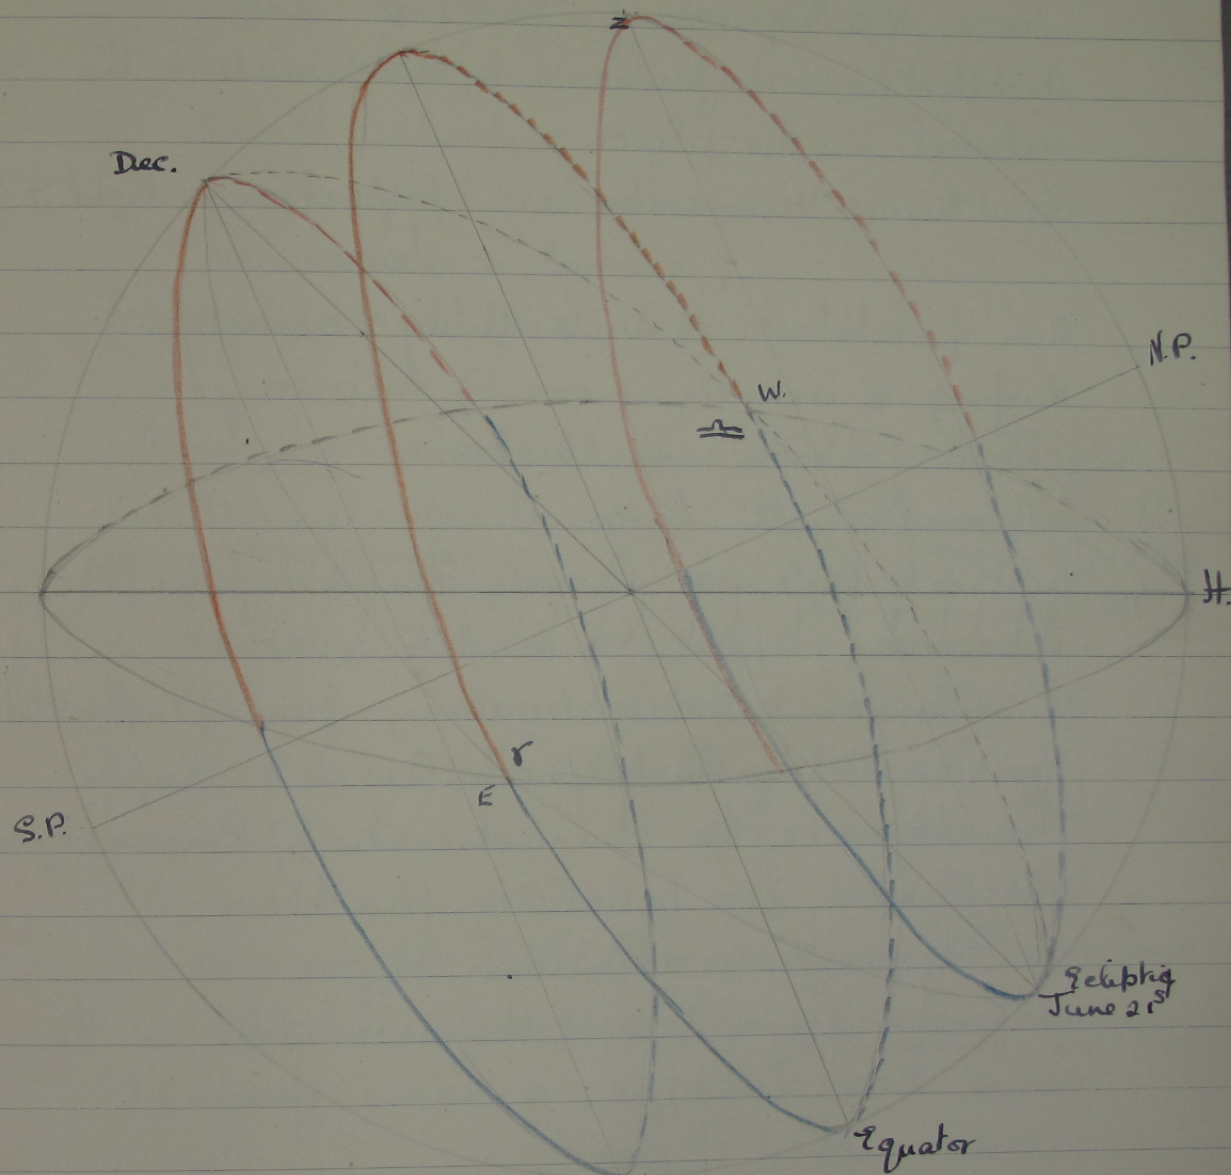 Z
Dec.
N.P.
W.
♎
H.
♈
E
S.P.
Ecliptic
June 21st
Equator